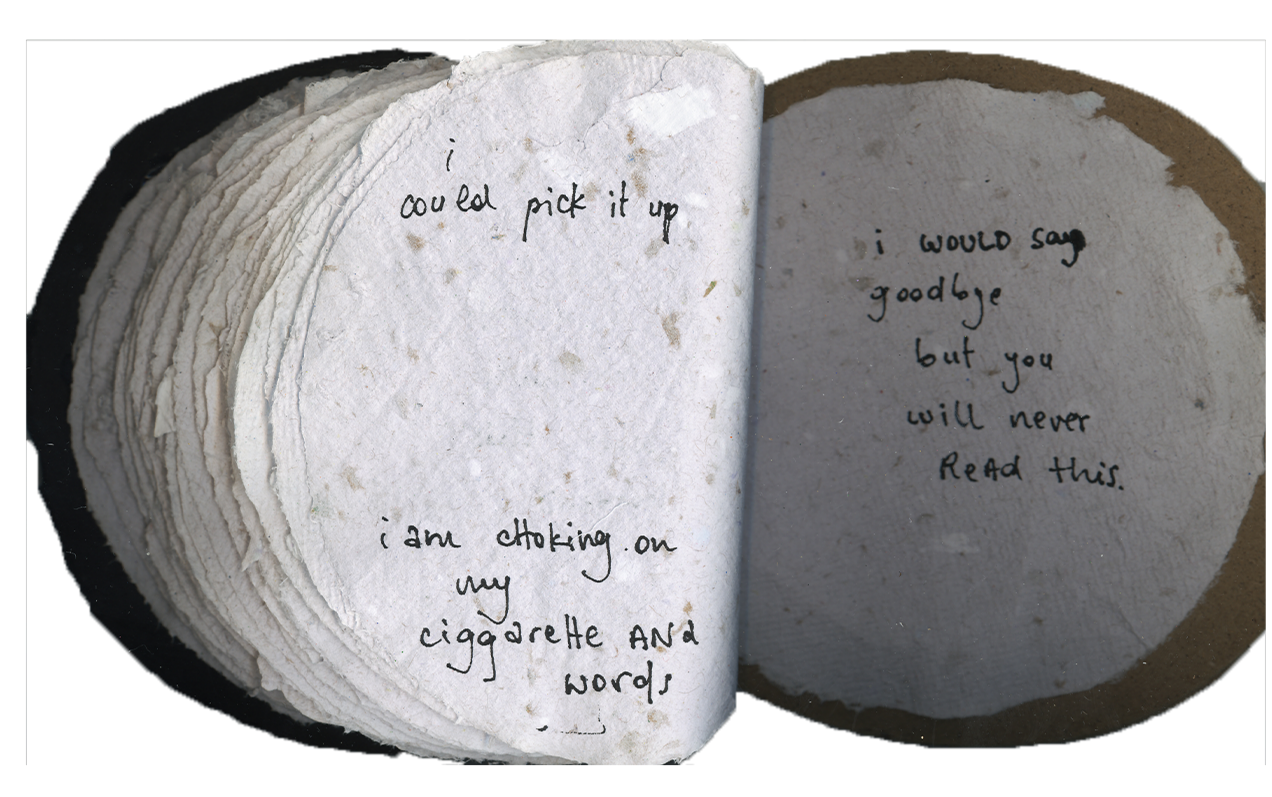 i
could pick it up
i am choking on
my
ciggarette ANd
words
i WOULD say
goodbye
but you
will never
ReAd this.